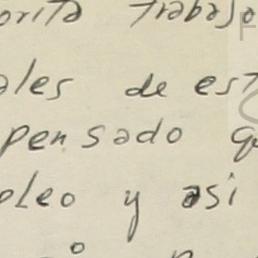 orita trabajo
ales de est
pensado q
pleo y asi